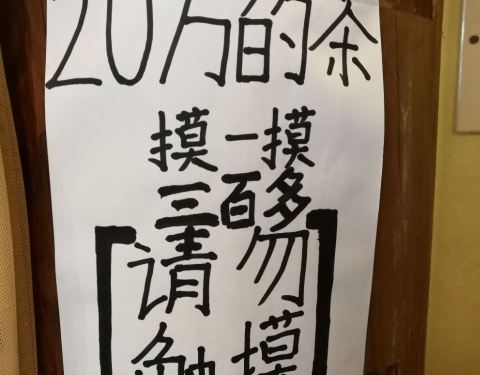 20万的余
摸一摸
三百多
请勿
触摸